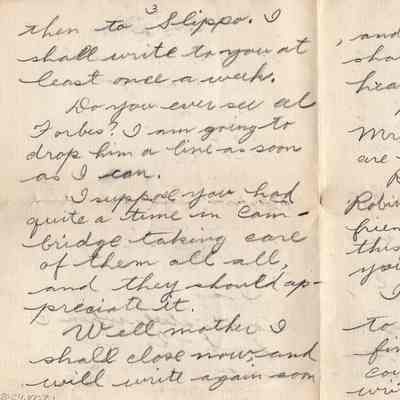 3
then to Slippo. I
shall write to you at
least once a week.
Do you ever see al
Forbes? I am going to
drop him a line as soon
as I can.
I suppose you had
quite a time in Cam-
bridge taking care
of them all all,
and they should ap-
preciate it.
Well mother I
shall close now and
will write again soon
, and
sha
hea
Mr
are
R
Robin
frien
this
you
I
to
fin
cou
wri